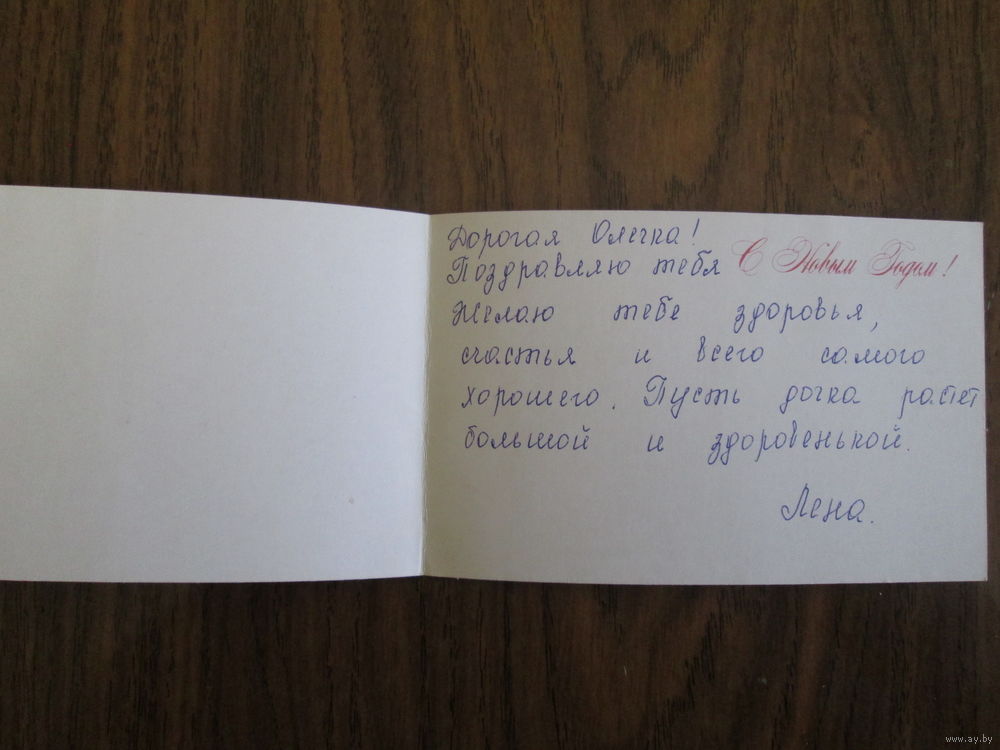 Дорогая Олечка!
Поздравляю тебя С Новым Годом!
Желаю тебе здоровья,
счастья и всего самого
хорошего. Пусть дочка растет
большой и здоровенькой.
Лена.
www.ay.by